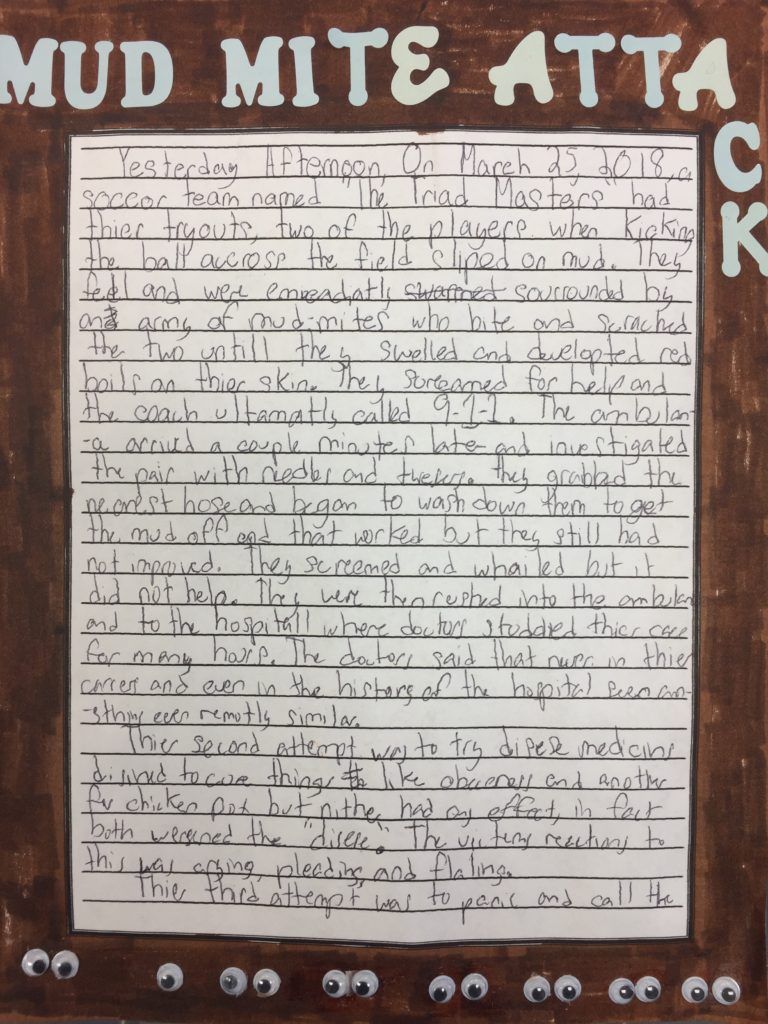 MUD MITE ATTACK
Yesterday Afternoon, On March 25, 2018, a
soccor team named "The Triad Masters" had
thier tryouts, two of the players when kicking
the ball accross the field sliped on mud. They
feel and were emmeadiatly swarmed sourrounded by
an army of mud-mites who bite and scrached
the two untill they swelled and developted red
boils on thier skin. They screamed for help and
the coach ultamatly called 9-1-1. The ambulan-
-a arrived a couple minutes late and investigated
the pair with needles and They grabbed the
nearest hose and began to wash down them to get
the mud off and that worked but they still had
not improved. They screemed and whailed but it
did not help. They were then rushed into the ambulan
and to the hospitall where doctors studdied thier case
for many hours. The doctors said that never in thier
careers and even in the history of the hospital seen an-
-ything ever remotly similar.
Thier second attempt was to try dipese medicins
disined to cure things like obaceness and another
for chicken pox but nithe had any effect, in fact
both wersened the "disese". The victems reactions to
this was crying, pleading, and flaling.
Thier third attempt was to panic and call the